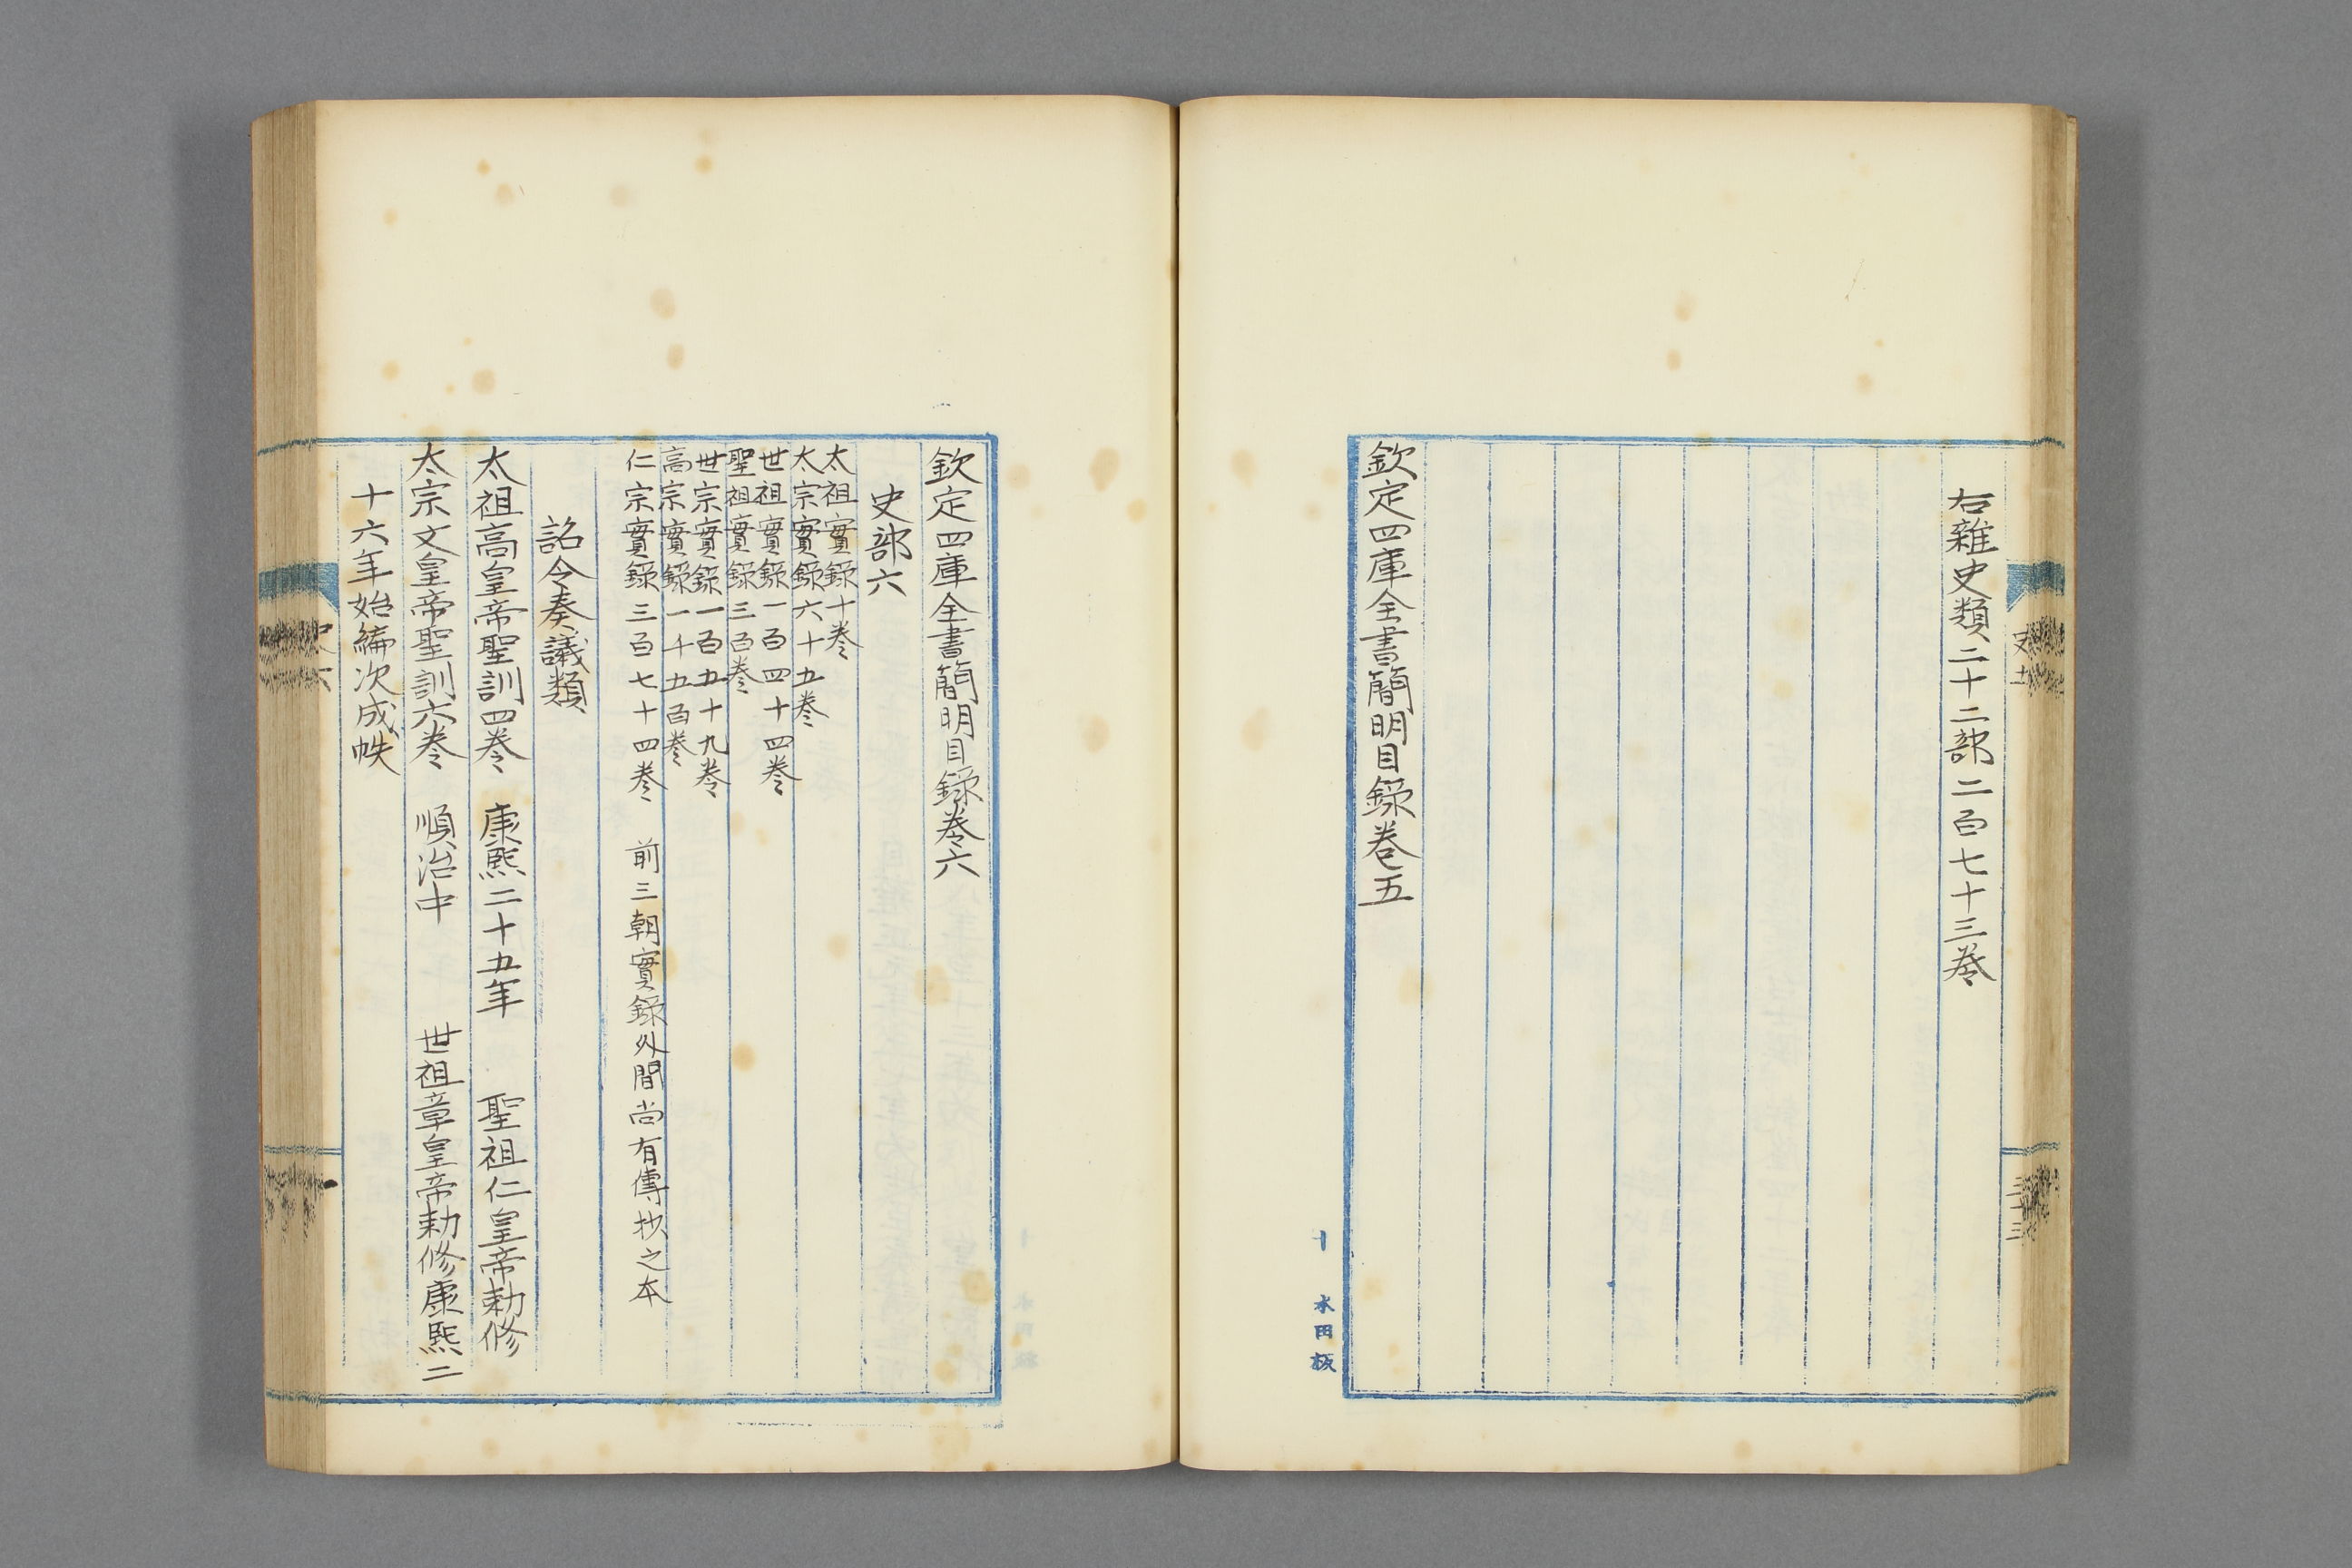 右雜史類二十二部二百七十三卷
欽定四庫全書簡明目錄卷五
木田板
欽定四庫全書簡明目錄卷六
史部六
太祖實錄十卷
太宗實錄六十五卷
世祖實錄一百四十四卷
聖祖實錄三百卷
世宗實錄一百五十九卷
高宗實錄一千五百卷
仁宗實錄三百七十四卷 前三朝實錄外間尚有傳抄之本
詔令奏議類
太祖高皇帝聖訓四卷 康熙二十五年 聖祖仁皇帝勅修
太宗文皇帝聖訓六卷 順治中 世祖章皇帝勅修康熙二
十六年始編次成帙
史六